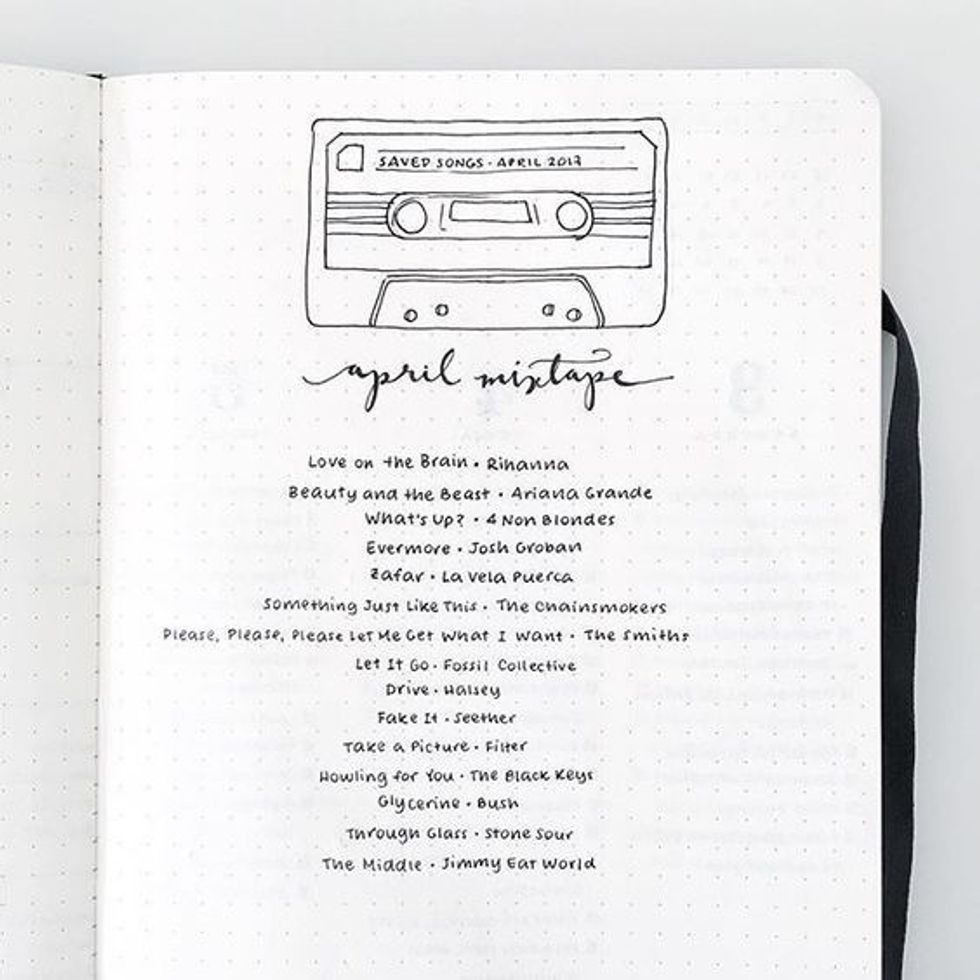 SAVED SONGS · APRIL 2017
april mixtape
Love on the Brain · Rihanna
Beauty and the Beast · Ariana Grande
What's Up? · 4 Non Blondes
Evermore · Josh Groban
Zafar · La Vela Puerca
Something Just Like This · The Chainsmokers
Please, Please, Please Let Me Get What I Want · The Smiths
Let It Go · Fossil Collective
Drive · Halsey
Fake It · Seether
Take a Picture · Filter
Howling for You · The Black Keys
Glycerine · Bush
Through Glass · Stone Sour
The Middle · Jimmy Eat World